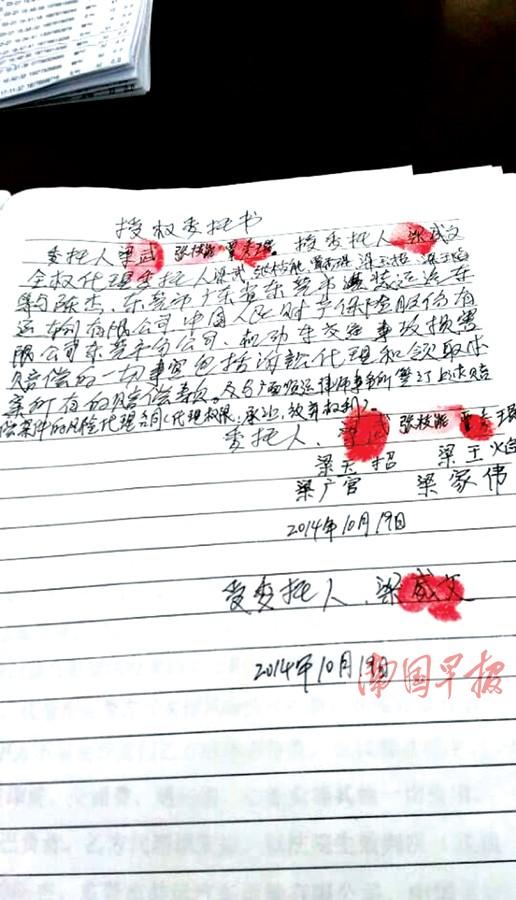 授权委托书
委托人梁武 张枝能 覃秀琼。授委托人梁威文
全权代理委托人梁武、张枝能、覃秀琼、梁玉招、梁玉焰
等与陈杰、东莞市广东省东莞市 装运汽车
运输有限公司中国人民财产保险股份有
限公司东莞市分公司、机动车交通事故损害
赔偿的一切事宜包括诉讼代理和领取本
案所有的赔偿款。及与广西 律师事务所签订 赔
偿案件的风险代理合同(代理权限:承认、放弃权利)。
委托人:梁武 张枝能 覃秀琼
梁玉招 梁玉焰
梁广官 梁家伟
2014年10月19日
受委托人:梁威文
2014年10月19日
南国早报